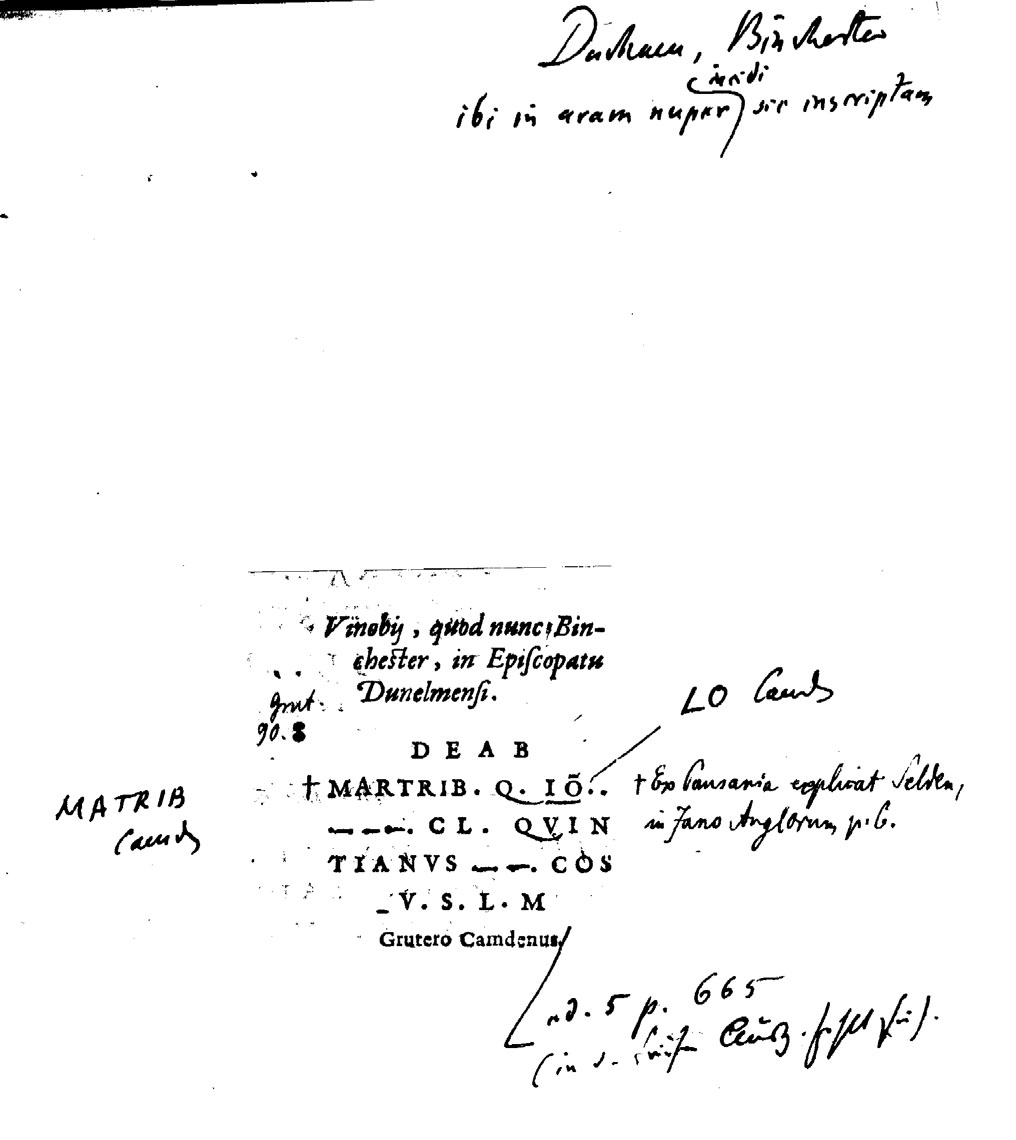 Durham, Binchester
incidi
ibi in aram nuper sic inscriptam
Vinobij, quod nunc Bin-
chester, in Episcopatu
Dunelmensi.
Grut.
90. 8
LO Camd
D E A B
† MARTRIB. Q. IŌ..
† Ex Pausania explicat Selden,
MATRIB
Camd
---. CL. QVIN
in Jano Anglorum p. 6.
TIANVS --. COS
V. S. L. M
Grutero Camdenus
ed. 5 p. 665
(in d.